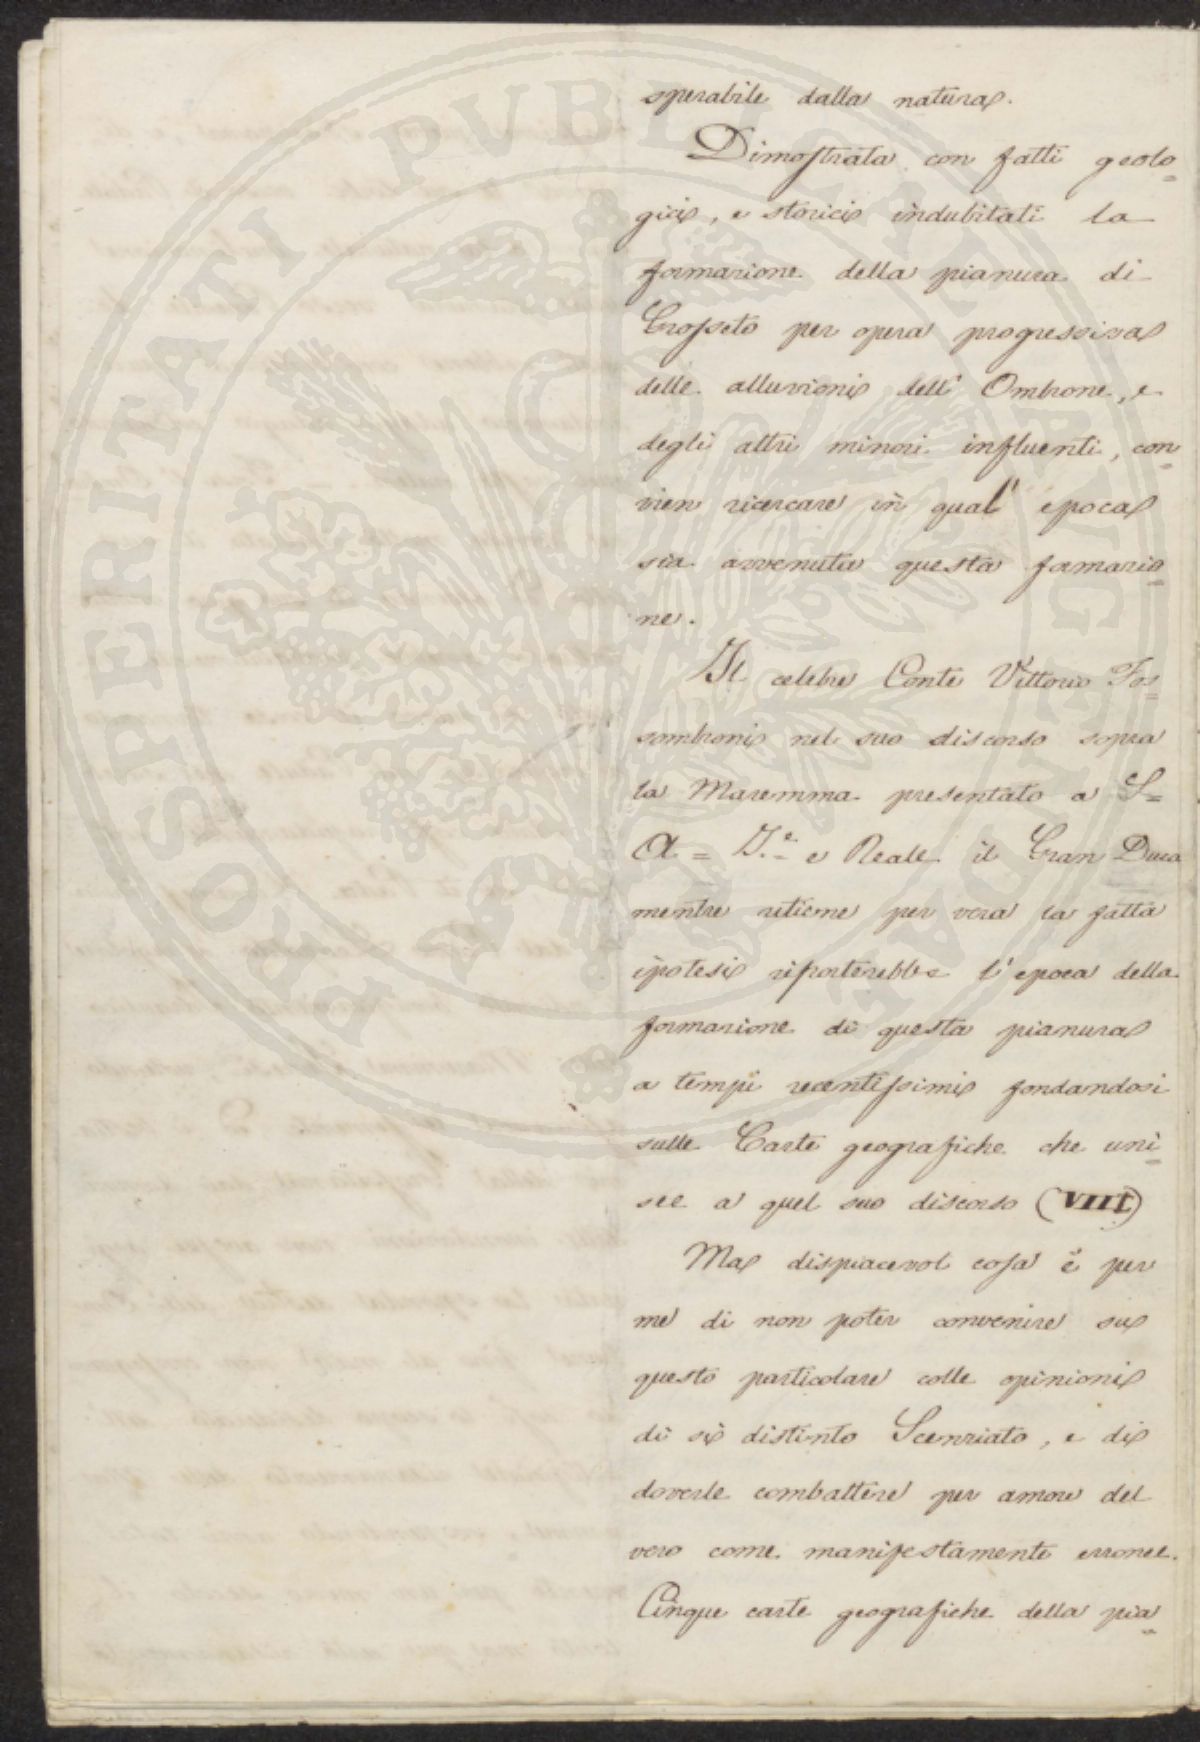 sperabile dalla natura.
Dimostrata con fatti geolo=
gici, e storici indubitati la
formazione della pianura di
Grosseto per opera progressiva
delle alluvioni dell' Ombrone, e
degli altri minori influenti, con=
vien ricercare in qual' epoca
sia avvenuta questa formazio=
ne.
Il celebre Conte Vittorio Fos=
sombroni nel suo discorso sopra
la Maremma presentato a S=
A= I.e e Reale il Gran Duca
mentre ritiene per vera la fatta
ipotesi riporterebbe l' epoca della
formazione di questa pianura
a tempi recentissimi fondandosi
sulle Carte geografiche che uni=
sce a quel suo discorso (VIII)
Ma dispiacevol cosa è per
me di non poter convenire su
questo particolare colle opinioni
di sì distinto Scenziato, e di
doverle combattere per amore del
vero come manifestamente erronee.
Cinque carte geografiche della pia=
PROSPERITATI PUBLICAE AUGENDAE